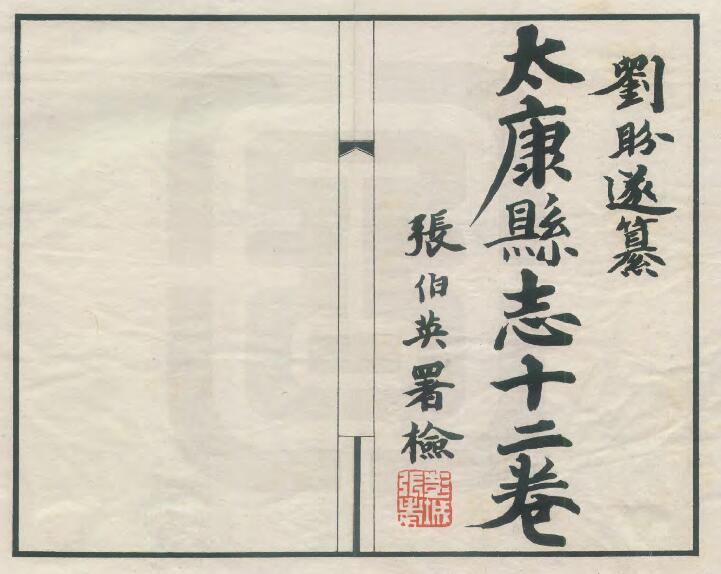 劉盼遂纂
太康縣志十二卷
張伯英署檢
彭城張書